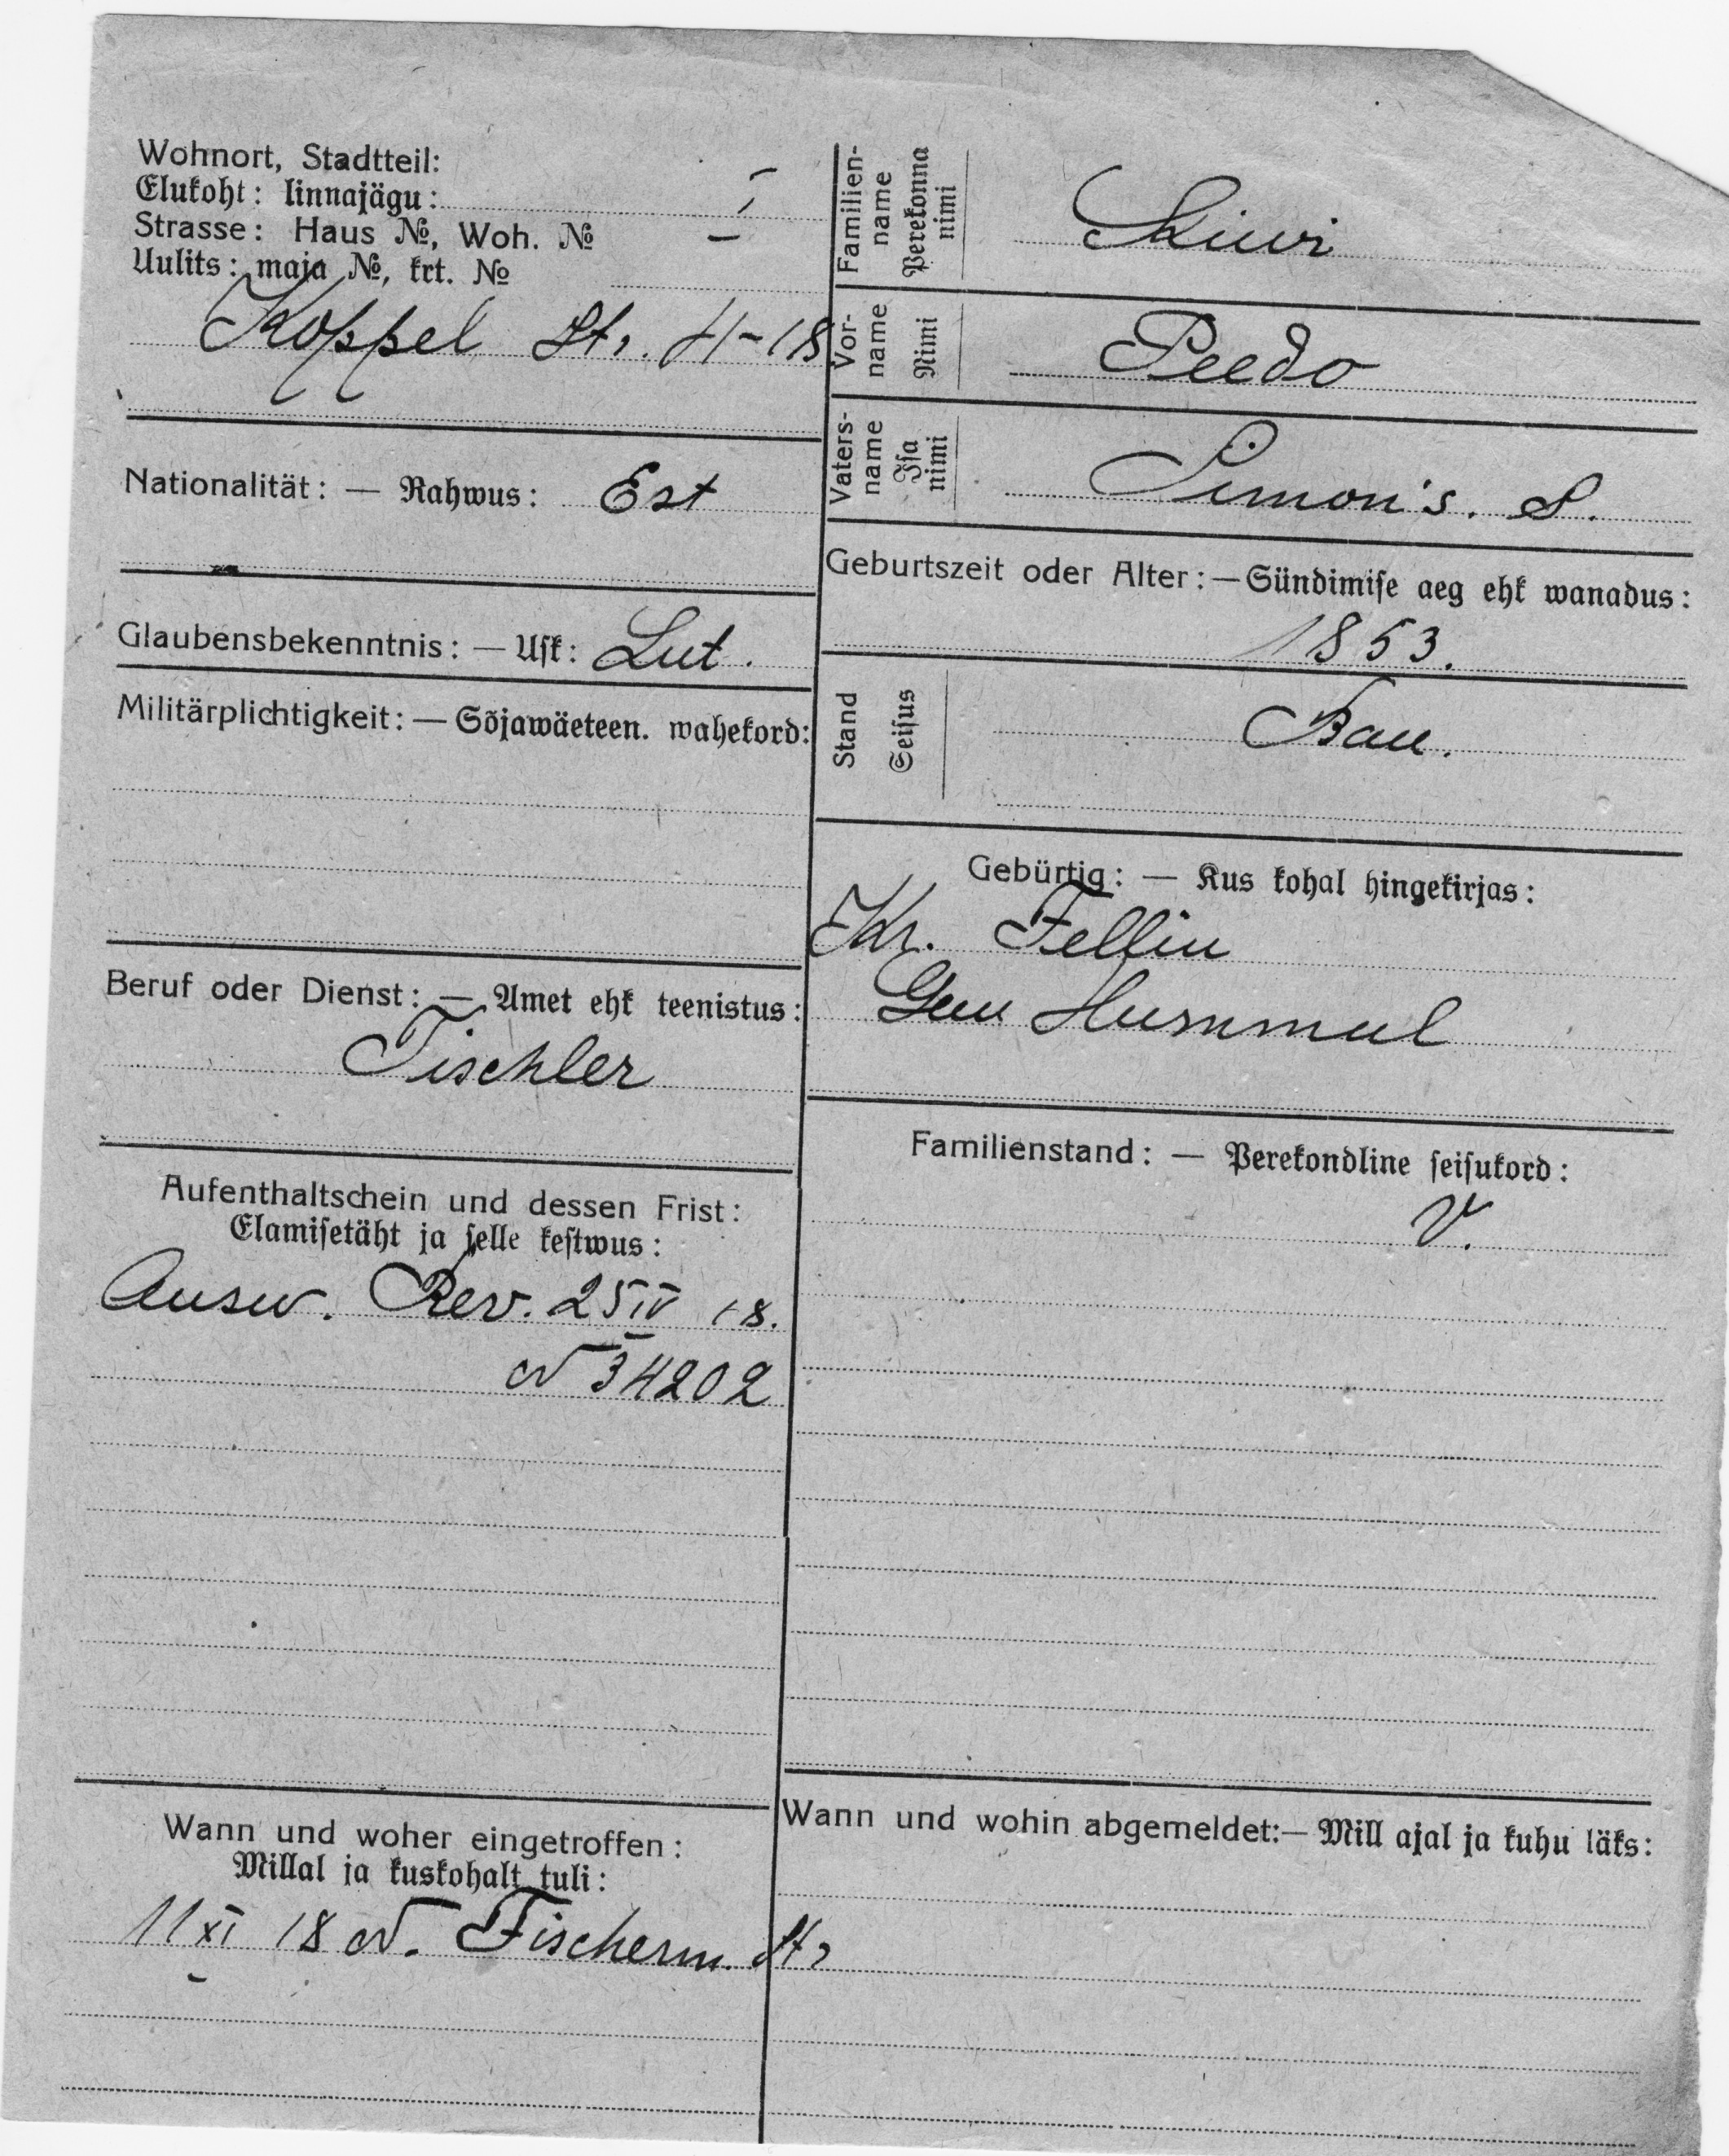 Wohnort, Stadtteil:
Elukoht: linnajägu: I
Strasse: Haus №, Woh. №
Uulits: maja №, krt. №
Koppel Str. 4-18
Nationalität: — Rahwus: Est
Glaubensbekenntnis: — Usk: Lut.
Militärplichtigkeit: — Sõjawäeteen. wahekord:
Beruf oder Dienst: — Amet ehk teenistus:
Tischler
Aufenthaltschein und dessen Frist:
Elamisetäht ja selle kestwus:
Ausw. Rev. 25 IV 18.
N 34202
Wann und woher eingetroffen:
Millal ja kuskohalt tuli:
11 XI 18 N. Fischerm. Str
Familien-
name
Perekonna
nimi
Vor-
name
Nimi
Peedo
Vaters-
name
Isa
nimi
Simon's. S.
Geburtszeit oder Alter: — Sündimise aeg ehk wanadus:
1853.
Stand
Seisus
Bau.
Gebürtig: — Kus kohal hingekirjas:
Kr. Fellin
Gem Hummul
Familienstand: — Perekondline seisukord:
V.
Wann und wohin abgemeldet: — Mill ajal ja kuhu läks: